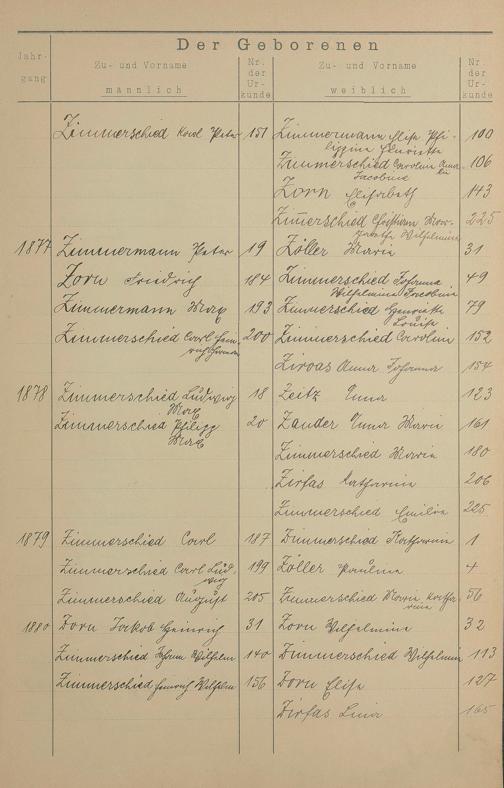 Der Geborenen
Jahr-
gang
Zu- und Vorname
männlich
Nr.
der
Ur-
kunde
Zu- und Vorname
weiblich
Nr.
der
Ur-
kunde
Zimmerschied Karl Peter 151 Zimmermann Elise Phi- 100
lippina Henriette
Zimmerschied Carolina Ama- 106
lie Jacobine
Zorn Elisabeth 143
Zimerschied Christiane Mar- 225
Wilhelmine
1877 Zimmermann Peter 19 Zöller Maria 31
Zorn Friedrich 184 Zimmerschied Johanna 49
Wilhelmine Jacobine
Zimmermann Max 193 Zimmerschied Henriette 79
Louise
Zimmerschied Carl Hein- 200 Zimmerschied Carolin 152
rich Hermann
Anna Johanna 154
1878 Zimmerschied Ludwig 18 Zeitz Anna 123
Max
Zimmerschied Philipp 20 Zander Anna Maria 161
Max
Zimmerschied Maria 180
Zirfas Katharina 206
Zimmerschied Emilie 225
1879 Zimmerschied Carl 187 Zimmerschied Katharina 1
Zimmerschied Carl Lud- 199 Zöller Paulina 4
wig
Zimmerschied August 205 Zimmerschied Maria Katha- 56
rina
1880 Zorn Jakob Heinrich 31 Zorn Wilhelmine 32
Zimmerschied Johann Wilhelm 140 Zimmerschied Wilhelmin 113
Zimmerschied Heinrich Wilhelm 156 Zorn Elise 127
Zirfas Lina 165